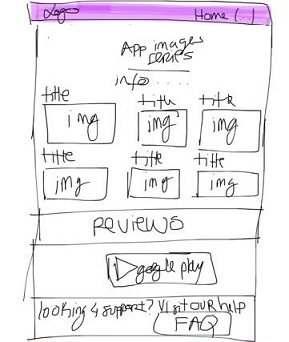 Logo Home (...)
App images
series
info....
title title title
img img img
title title title
img img img
REVIEWS
google play
looking 4 support? Visit our help
FAQ